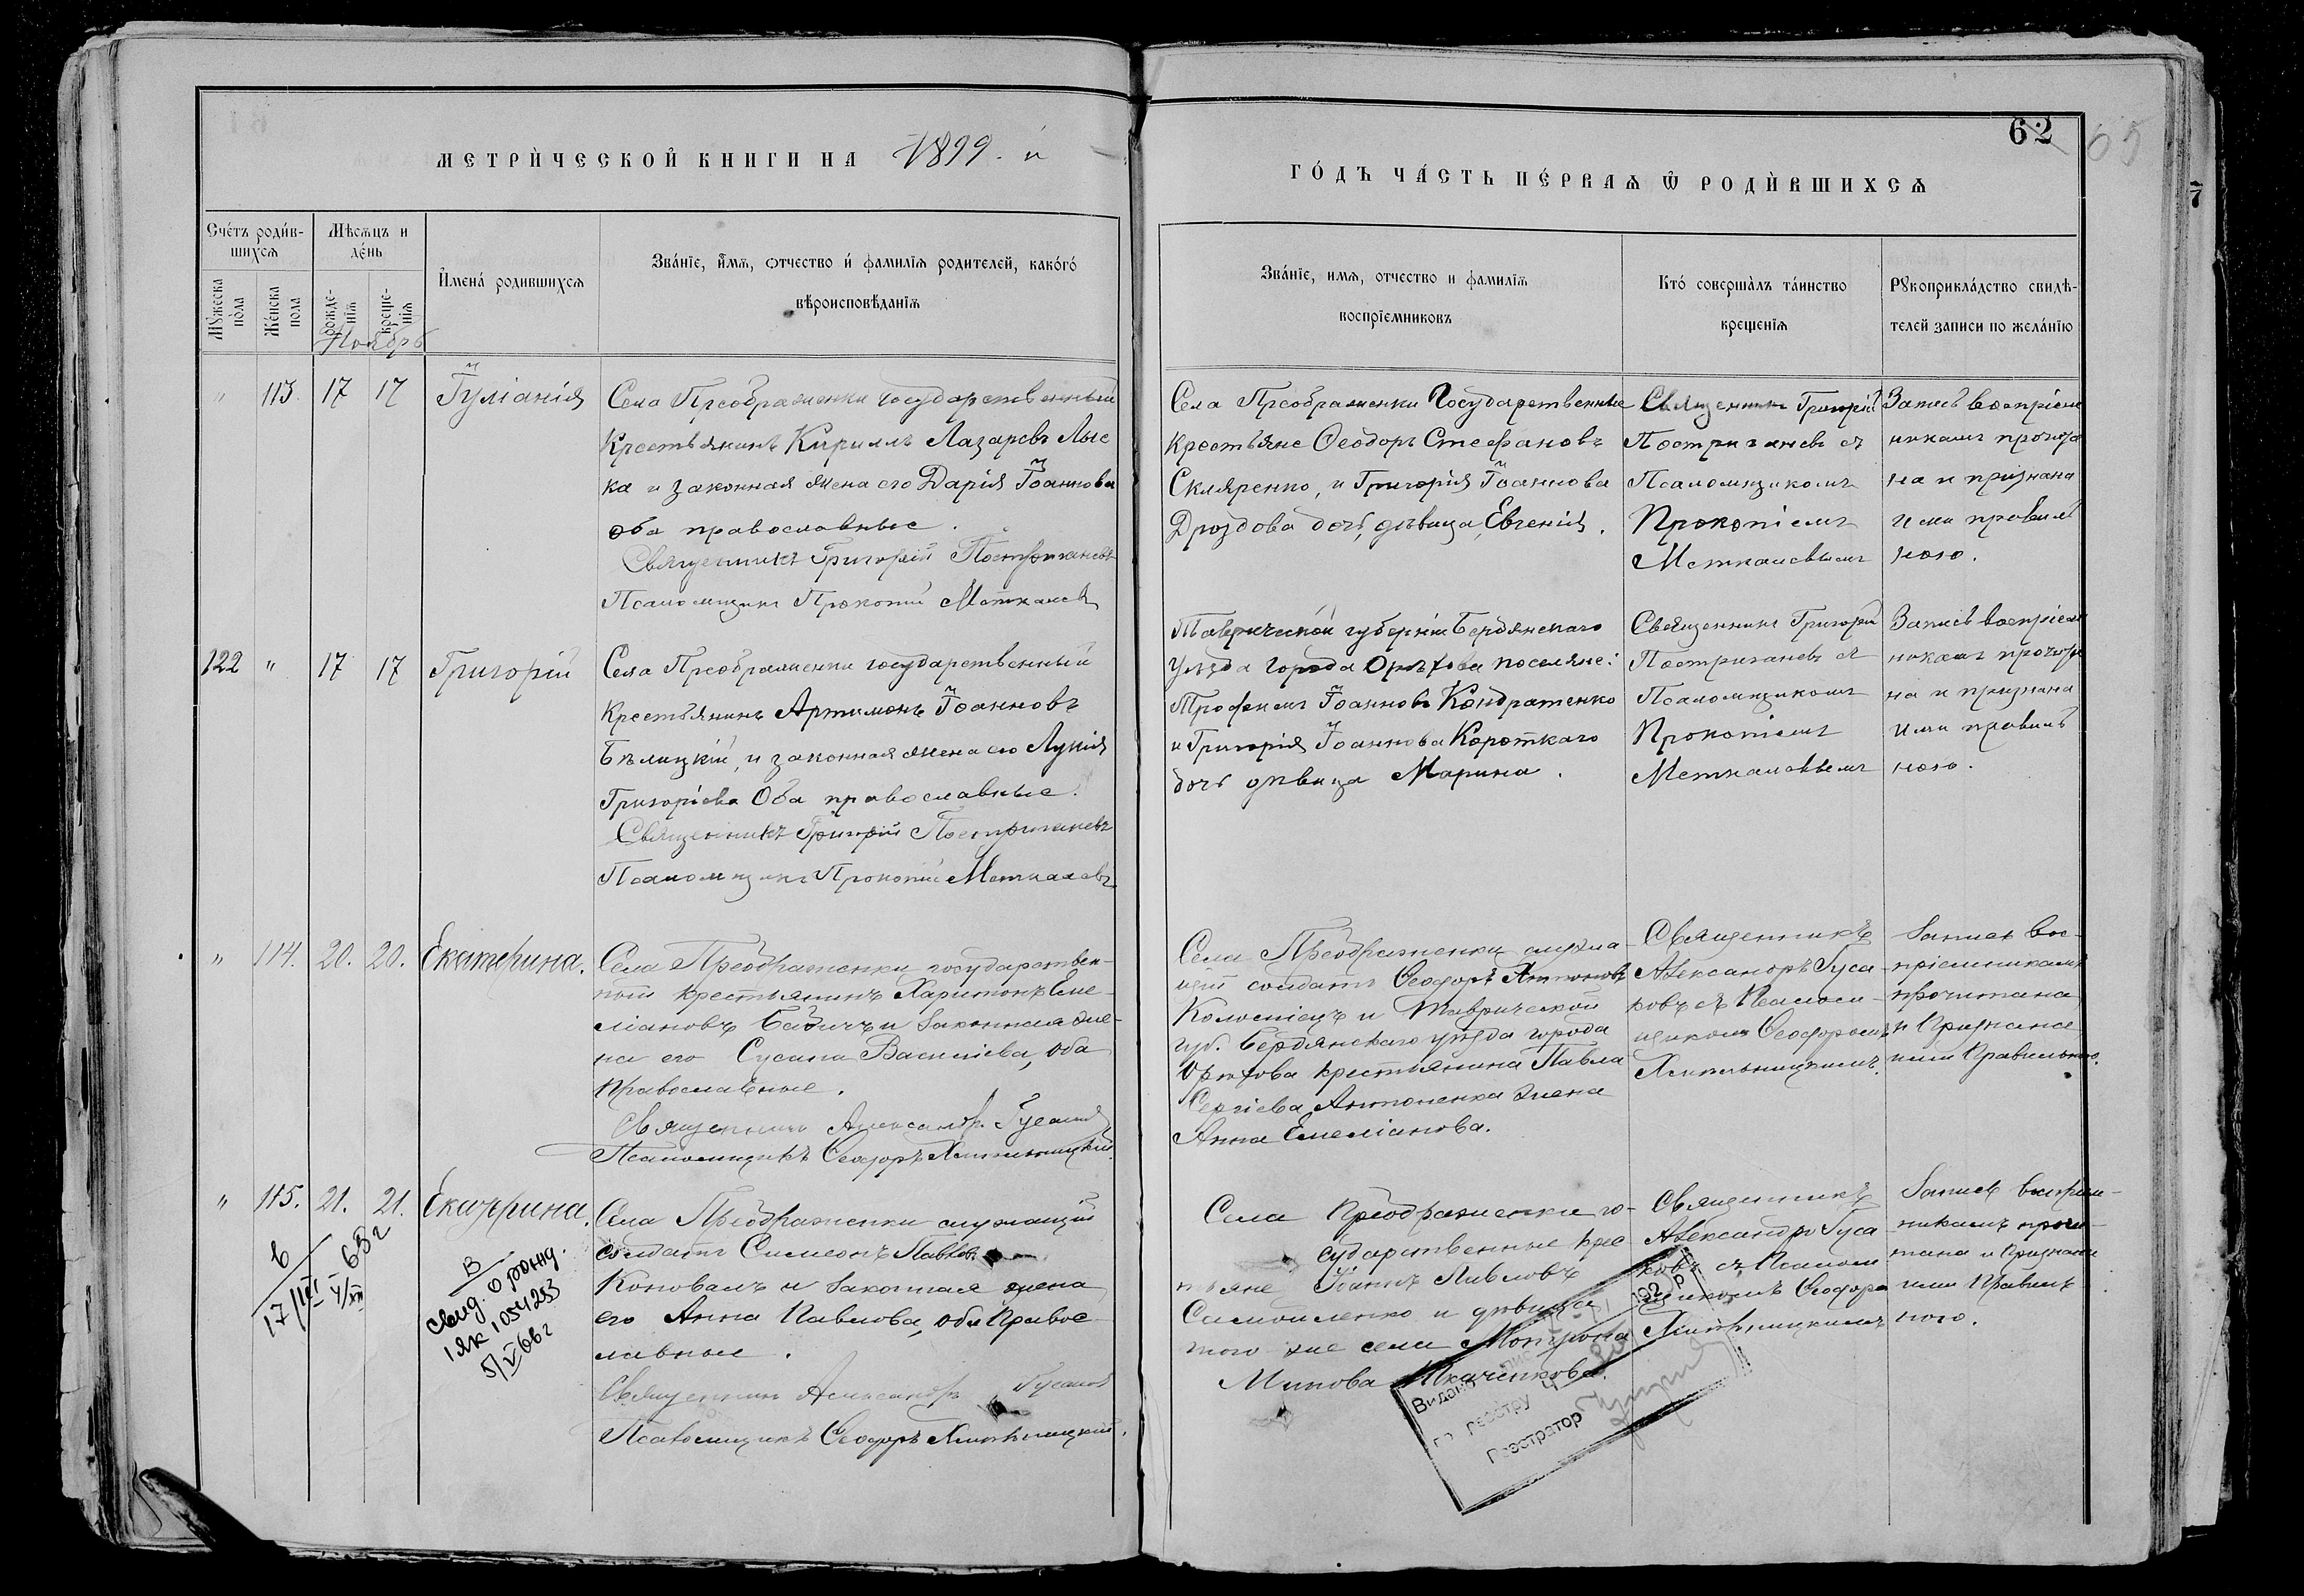 62
65
7
МЕТРИ́ЧЕСКОЙ КНИГИ НА 1899. й
ГО́ДЪ ЧА́СТЬ ПЕ́РВАѦ Ѿ РОДИ́ВШИХСѦ
Сче́тъ роди́в-
шихсѧ
Мѣсѧцъ и
де́нь
И҆мена̀ родившихсѧ
Зва́нїе, и҆́мѧ, ѻтчество и҆ фамилїѧ родителей, како́гѻ́
вѣроисповѣданїѧ
Мꙋжеска
по́ла
Же́нска
пола
рожде-
нїѧ
креще-
нїѧ
Ноябрь
Зва́нїе, имѧ, отчество и фамилїѧ
воспрїемниковъ
Кто́ соверша̀лъ та́инство
крещенїѧ
Рꙋкоприкла́дство свидѣ-
телей записи по жела́нїю
" 113. 17 17 Іуліанія
Села Преображенки государственный
Крестьянинъ Кириллъ Лазаревъ Лыс
ка и законная жена его Дарія Іоаннова
оба православные.
Священникъ Григорій Постриганевъ
Псаломщикъ Прокопій Меткалевъ
Села Преображенки Государственные
крестьяне Ѳеодоръ Стефановъ
Скляренко, и Григорія Іоаннова
Дроздова дочь, дѣвица, Евгенія.
Священникъ Григорій
Постриганевъ съ
Псаломщикомъ
Прокопіемъ
Меткалевымъ
Запись воспріем
никамъ прочита
на и признана
ими правиль
ною.
122 " 17 17 Григорій
Села Преображенки государственный
Крестьянинъ Артимонъ Іоанновъ
Бѣлицкій, и законная жена его Лукія
Григоріева Оба православные.
Священникъ Григорій Постриганевъ
Псаломщикъ Прокопій Меткалевъ
Таврической губерніи Бердянскаго
Уѣзда города Орѣхова поселяне:
Трофимъ Іоанновъ Кондратенко
и Григорія Іоаннова Короткаго
дочь дѣвица Марина.
Священникъ Григорій
Постриганевъ съ
Псаломщикомъ
Прокопіемъ
Меткалевымъ
Запись воспріем
никамъ прочита
на и признана
ими правиль
ною.
" 114. 20. 20. Екатерина.
Села Преображенки государствен-
ный крестьянинъ Харитонъ Еме-
ліановъ Бабичъ и законная же-
на его Сусана Василіева, оба
православные.
Священникъ Александръ Гусаковъ
Псаломщикъ Ѳеодоръ Хмельницкій.
Села Преображенки служа-
щій солдатъ Ѳеодоръ Антоновъ
Колосніецъ и Таврической
губ. Бердянскаго уѣзда города
Орѣхова крестьянина Павла
Сергіева Антоненка жена
Анна Емеліанова.
Священникъ
Александръ Гуса-
ковъ съ Псалом-
щикомъ Ѳеодоромъ
Хмельницкимъ.
Запись вос-
пріемникамъ
прочитана
и признана
ими правильною.
" 115. 21. 21. Екатерина.
Села Преображенки служащій
солдатъ Симеонъ Павловъ
Коновалъ и законная жена
его Анна Павлова, оба Правос
лавные.
Священникъ Александръ Гусаковъ
Псаломщикъ Ѳеодоръ Хмельницкій.
Села Преображенки го-
сударственные крес
тьяне Іоаннъ Павловъ
Самойленко и дѣвица
того же села Мотрона
Минова Ткаченкова.
Священникъ
Александръ Гуса
ковъ съ Псалом
щикомъ Ѳеодоро
Хмельницкимъ
Запись воспріем-
никамъ прочи-
тана и признана
ими правиль
ною.
В
свид. о рожд.
1 ЯК 1054253
5/V 66 г
Видано
по реєстру
Реєстратор
192 р.